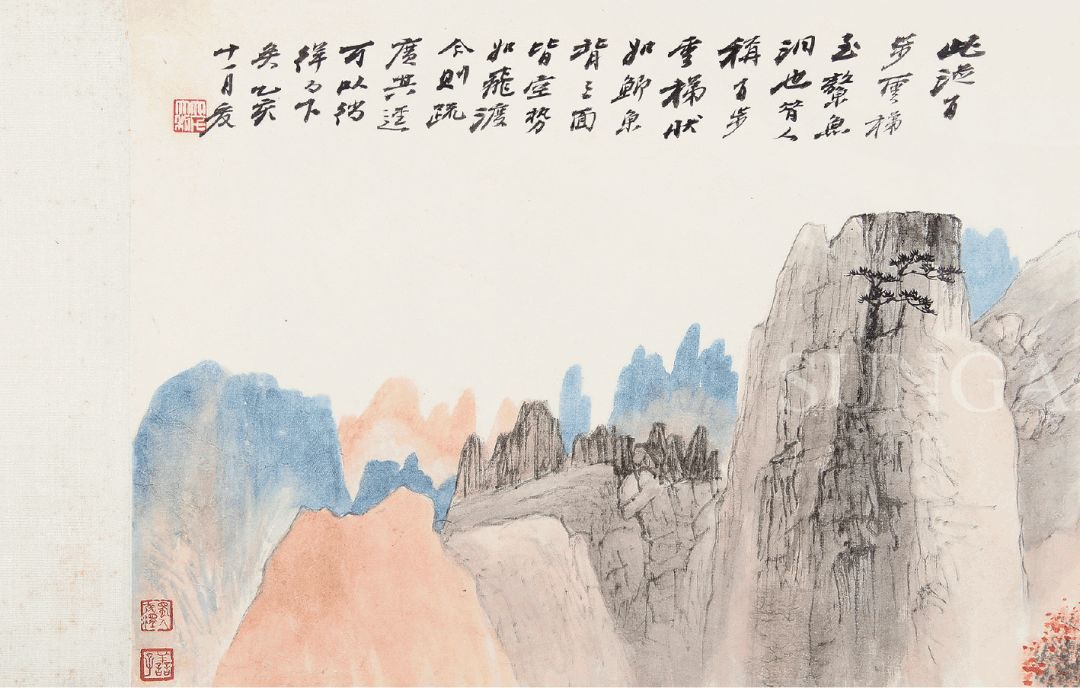 此從百
步雲梯
至鰲魚
洞也昔人
稱百步
雲梯狀
如鯽魚
背三面
皆空勢
如飛渡
今則疏
廣其逕
可以徜
徉下
矣乙亥
十一月爰
蜀人張澤
善子
SUNGA